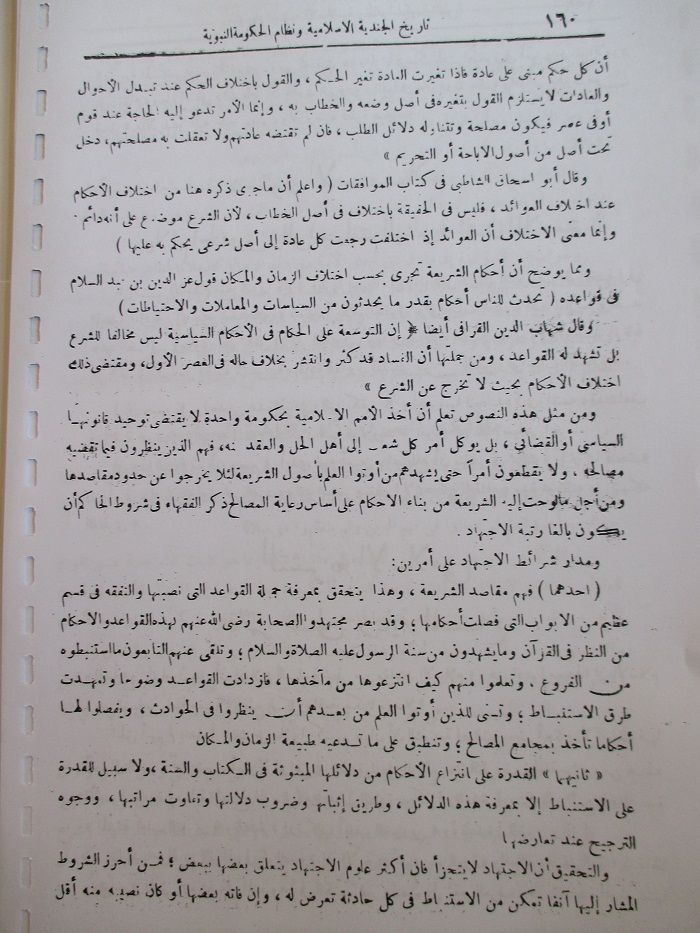 ١٦٠
تاريخ الجندية الاسلامية ونظام الحكومة النبوية
أن كل حكم مبنى على عادة فاذا تغيرت العادة تغير الحكم ، والقول باختلاف الحكم عند تبدل الأحوال
والعادات لا يستلزم القول بتغيره فى أصل وضعه والخطاب به ، وإنما الأمر تدعو إليه الحاجة عند قوم
أو فى عصر فيكون مصلحة وتتناوله دلائل الطلب ، فان لم تقتضه عادتهم ولا تعلقت به مصلحتهم، دخل
تحت أصل من أصول الاباحة أو التحريم »
وقال أبو اسحاق الشاطبى فى كتاب الموافقات ( واعلم أن ماجرى ذكره هنا من اختلاف الأحكام
عند اختلاف العوائد ، فليس فى الحقيقة باختلاف فى أصل الخطاب ، لأن الشرع موضوع على أنه دائم
وإنما معنى الاختلاف أن العوائد إذ اختلفت رجعت كل عادة إلى أصل شرعى يحكم به عليها )
ومما يوضح أن أحكام الشريعة تجرى بحسب اختلاف الزمان والمكان قول عز الدين بن عبد السلام
فى قواعده ( تحدث للناس أحكام بقدر ما يحدثون من السياسات والمعاملات والاحتياطات )
وقال شهاب الدين القرافى أيضا « إن التوسعة على الحكام فى الأحكام السياسية ليس مخالفا للشرع
بل تشهد له القواعد ، ومن جملتها أن الفساد قد كثر وانتشر بخلاف حاله فى العصر الأول، ومقتضى ذلك
اختلاف الأحكام بحيث لا تخرج عن الشرع »
ومن مثل هذه النصوص تعلم أن أخذ الأمم الاسلامية بحكومة واحدة لا يقتضى توحيد قانونها
السياسى أو القضائى ، بل يوكل أمر كل شعب إلى أهل الحل والعقد منه، فهم الذين ينظرون فيما تقتضيه
مصالحه ، ولا يقطعون أمراً حتى يشهدهم من أوتوا العلم بأصول الشريعة لئلا يخرجوا عن حدود مقاصدها
ومن أجل مالوحت إليه الشريعة من بناء الاحكام على أساس رعاية المصالح ذكر الفقهاء فى شروط الحاكم أن
يكون بالغا رتبة الاجتهاد .
ومدار شرائط الاجتهاد على أمرين:
( احدهما ) فهم مقاصد الشريعة ، وهذا يتحقق بمعرفة جملة القواعد التى نصبتها والتفقه فى قسم
عظيم من الابواب التى فصلت أحكامها ؛ وقد بصر مجتهدو الصحابة رضى الله عنهم بهذه القواعد والاحكام
من النظر فى القرآن وما يشهدون من سنة الرسول عليه الصلاة والسلام ؛ وتلقى عنهم التابعون ما استنبطوه
من الفروع . وتعلموا منهم كيف انتزعوها من مآخذها ، فازدادت القواعد وضوحا وتمهدت
طرق الاستنباط ؛ وتسنى للذين أوتوا العلم من بعدهم أن ينظروا فى الحوادث ، ويفصلوا لها
أحكاما تأخذ بمجامع المصالح ؛ وتنطبق على ما تستدعيه طبيعة الزمان والمكان
« ثانيهما » القدرة على انتزاع الأحكام من دلائلها المبثوثة فى الكتاب والسنة ، ولا سبيل للقدرة
على الاستنباط إلا بمعرفة هذه الدلائل ، وطريق إثباتها وضروب دلالتها وتفاوت مراتبها ، ووجوه
الترجيح عند تعارضها
والتحقيق أن الاجتهاد لا يتجزأ فان أكثر علوم الاجتهاد يتعلق بعضها ببعض ؛ فمن أحرز الشروط
المشار إليها آنفا تمكن من الاستنباط فى كل حادثة تعرض له ، وإن فاته بعضها أو كان نصيبه منه أقل